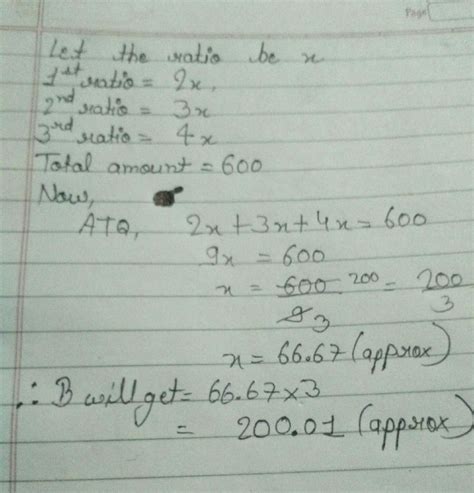 Page
Let the ratio be x
1st ratio = 2x,
2nd ratio = 3x
3rd ratio = 4x
Total amount = 600
Now,
ATQ, 2x + 3x + 4x = 600
9x = 600
x = 600 200 = 200
9 3 3
x = 66.67 (approx)
∴ B will get = 66.67 × 3
= 200.01 (approx)